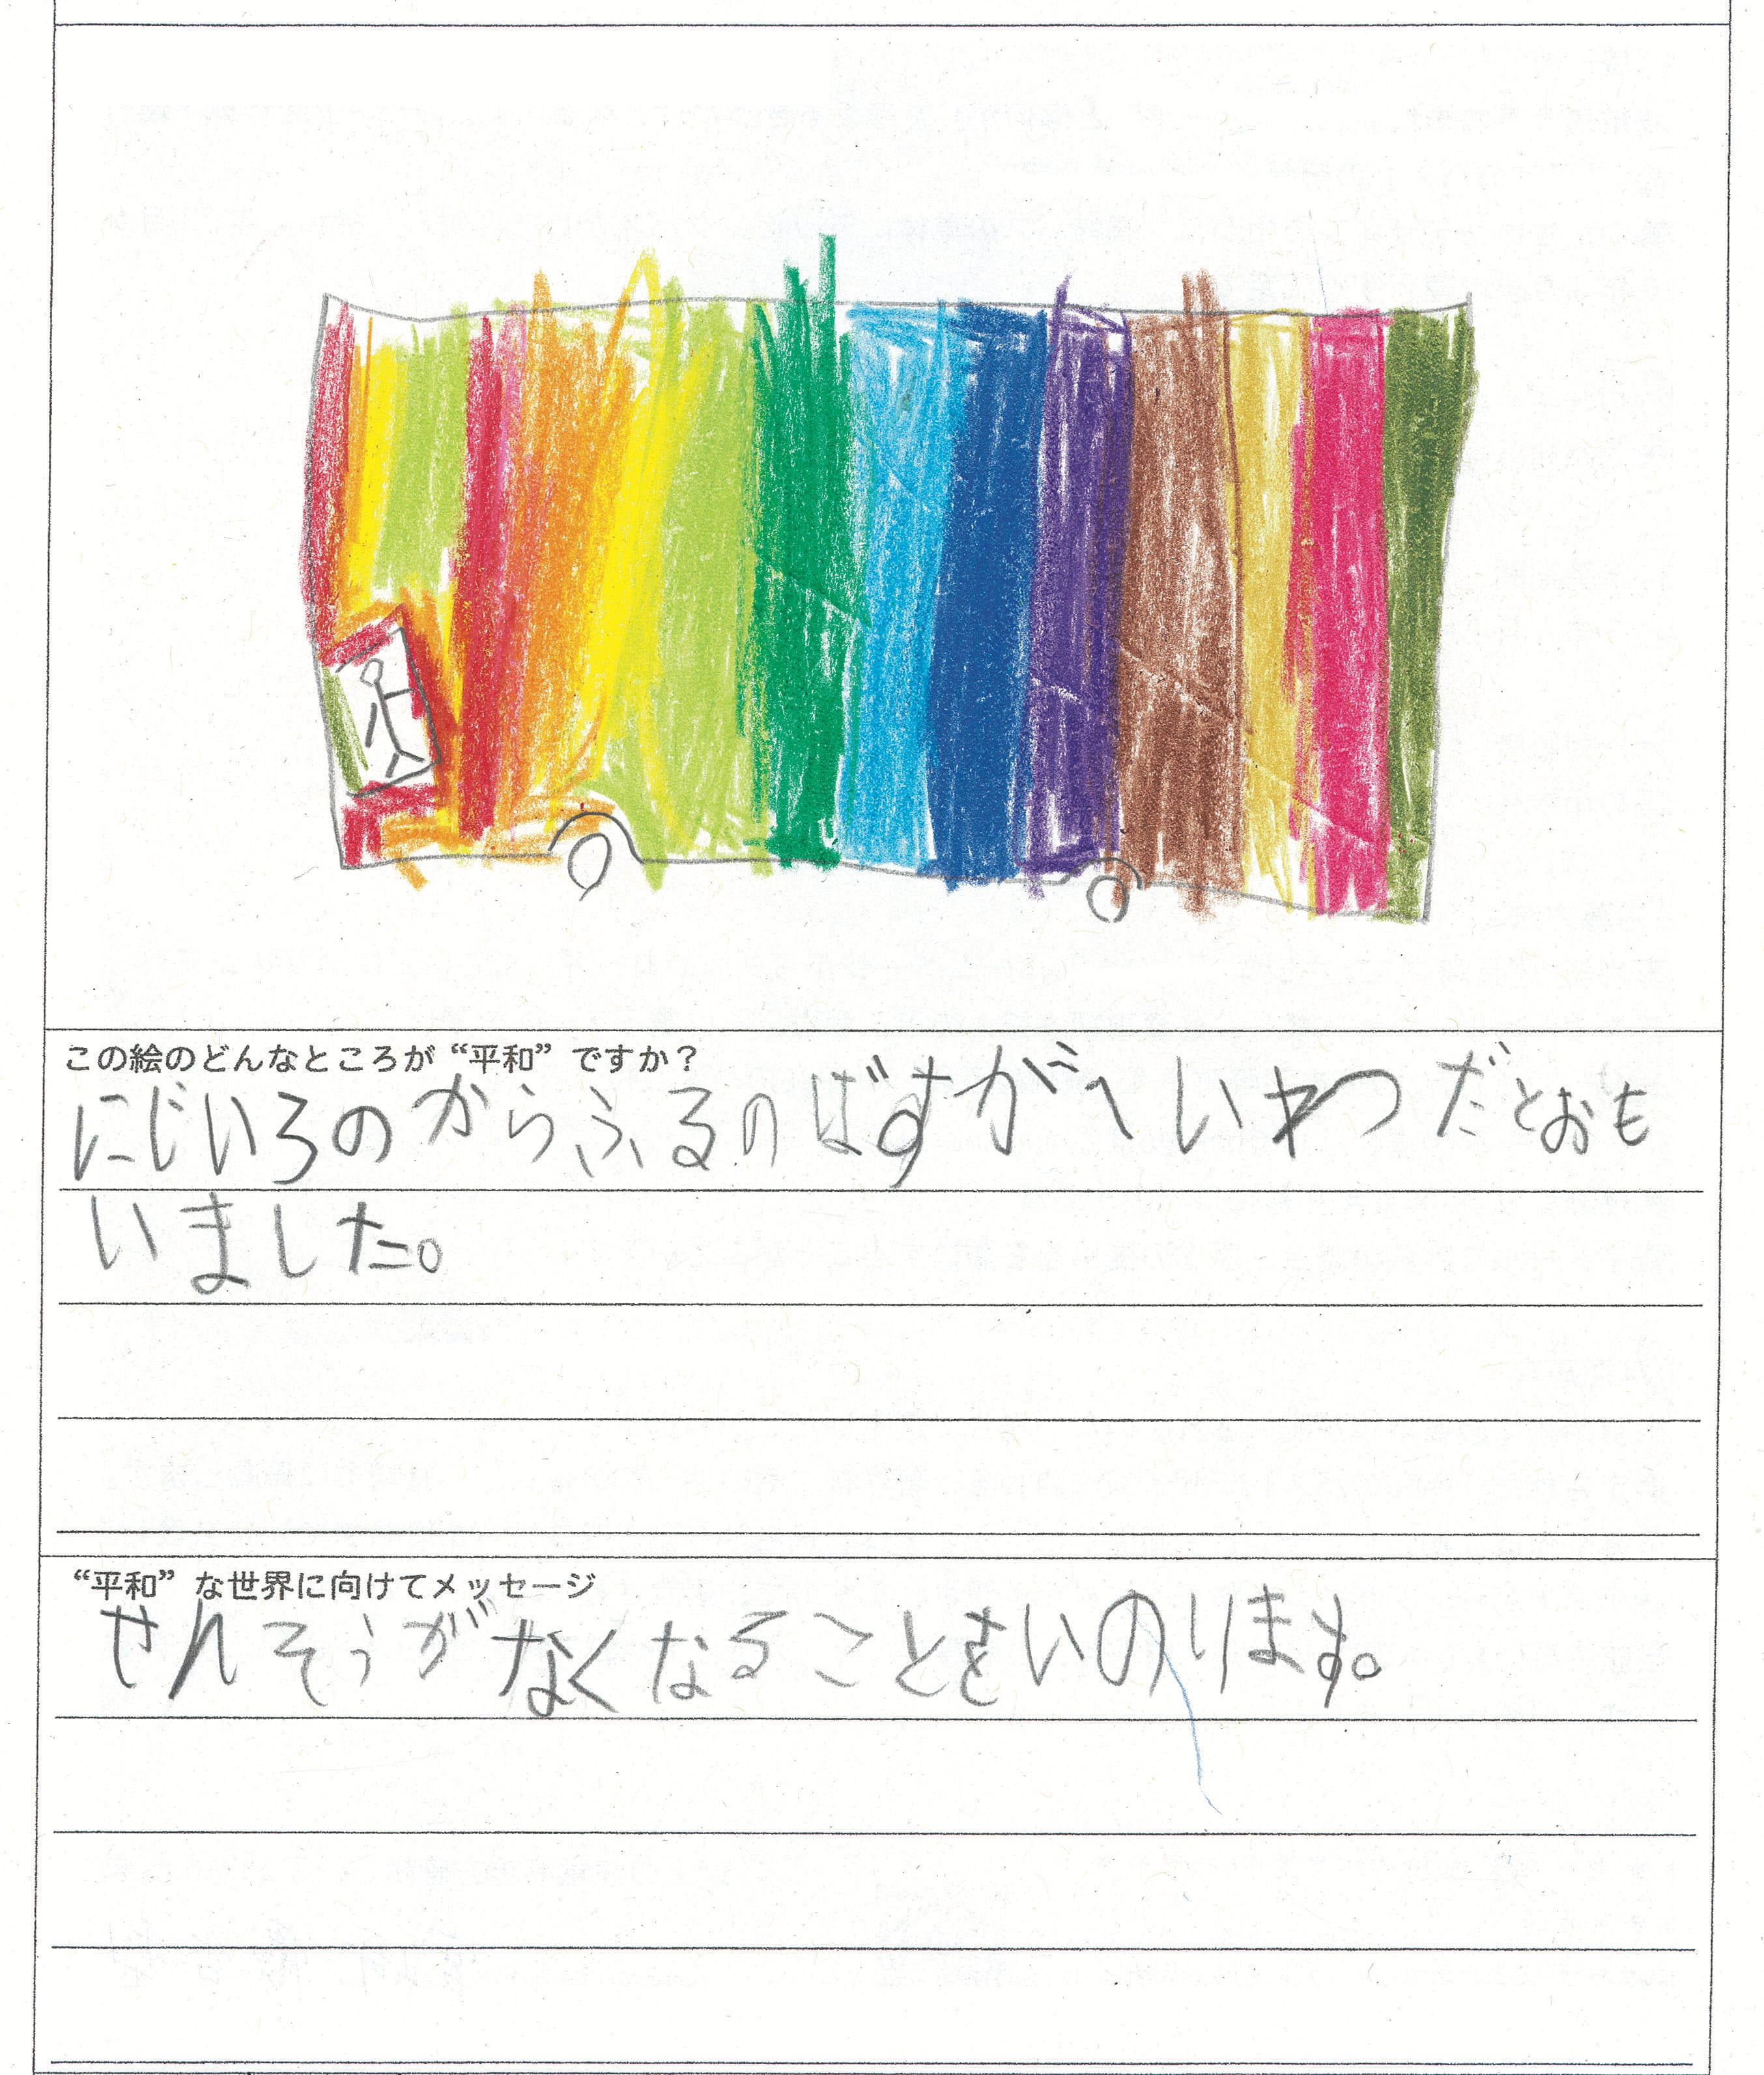 この絵のどんなところが“平和”ですか？
にじいろのからふるのばすがへいわつだとおも
いました。
“平和”な世界に向けてメッセージ
せんそうがなくなることをいのります。